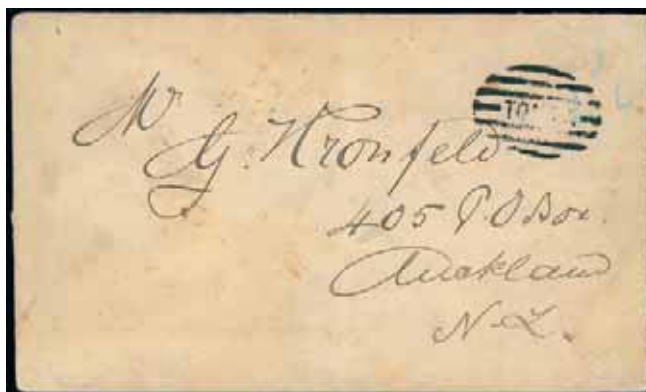 Mr
G. Kronfeld
405 P.O Box.
Auckland
N.Z.